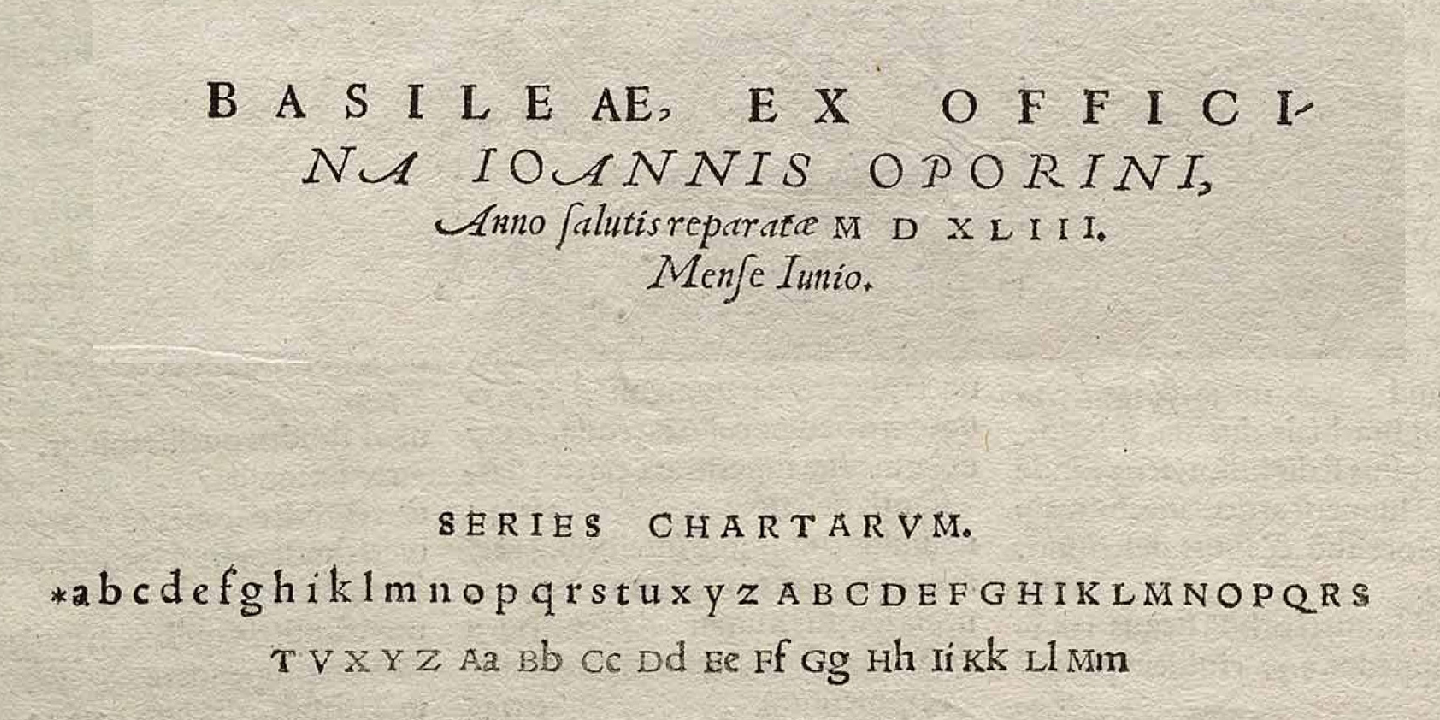 BASILEAE, EX OFFICI-
NA IOANNIS OPORINI,
Anno ſalutis reparatæ M D XLIII.
Menſe Iunio.
SERIES CHARTARVM.
*a b c d e f g h i k l m n o p q r s t u x y z A B C D E F G H I K L M N O P Q R S
T V X Y Z Aa Bb Cc Dd Ee Ff Gg Hh Ii Kk Ll Mm